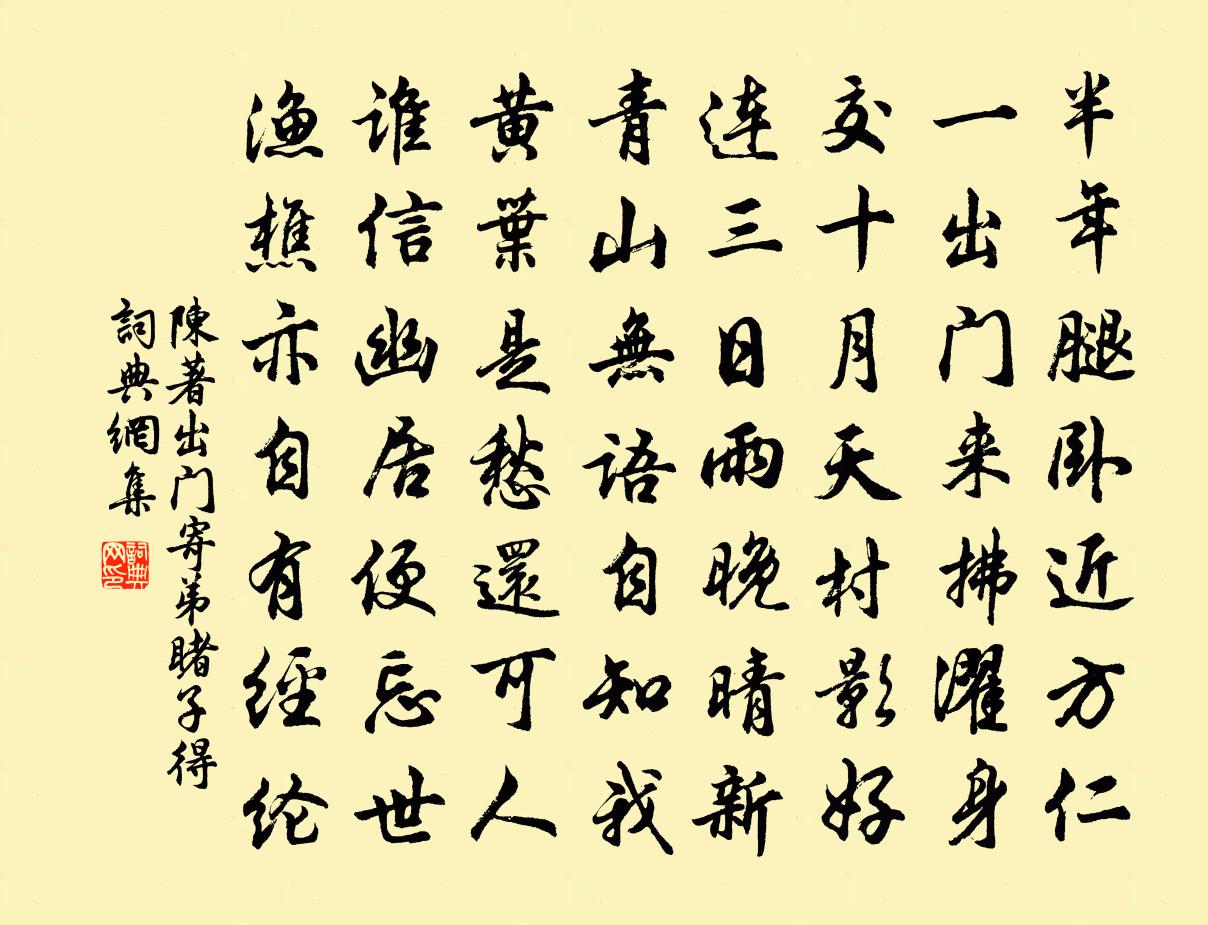 半年腿卧近方仁
一出门来拂濯身
交十月天村影好
连三日雨晚晴新
青山無語自知我
黄葉是愁還可人
谁信幽居便忘世
漁樵亦自有經纶
陳著出门寄弟睹子得
詞典網集
詞典网印